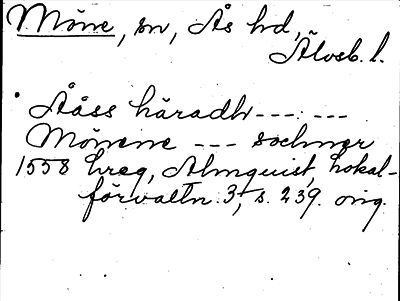 Möne, sn, Ås hd,
Älvsb. l.
Ååss häradh --- ---
Mönene --- sochner
1558 hreg, Almquist, Lokal-
förvaltn. 3, s. 239. orig.